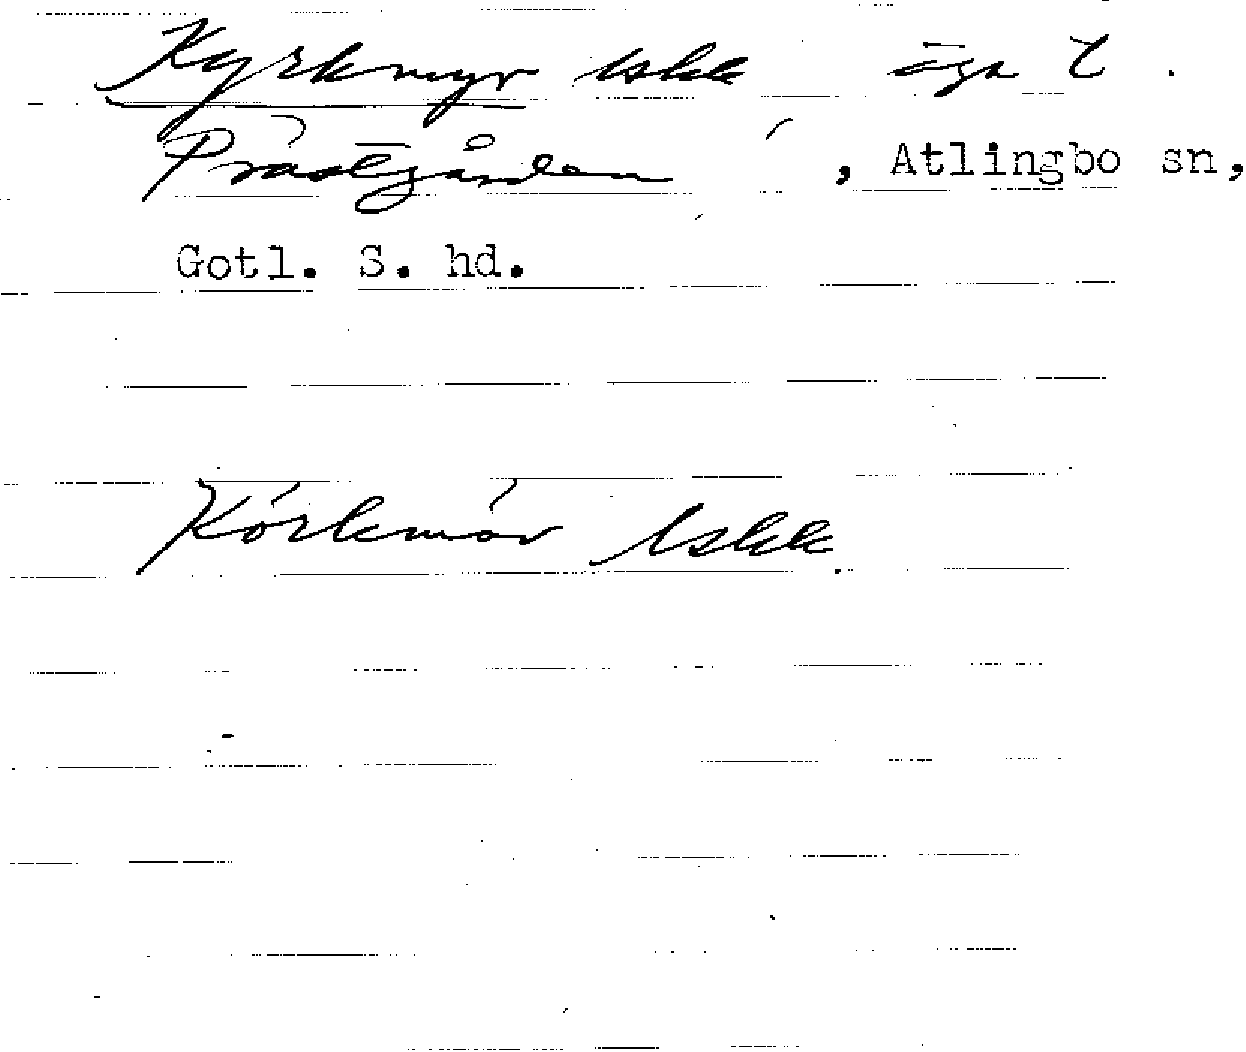 Kyrkmyr Uskk äga t.
Prästgården, Atlingbo sn,
Gotl. S. hd.
Körkmöv Uskk.